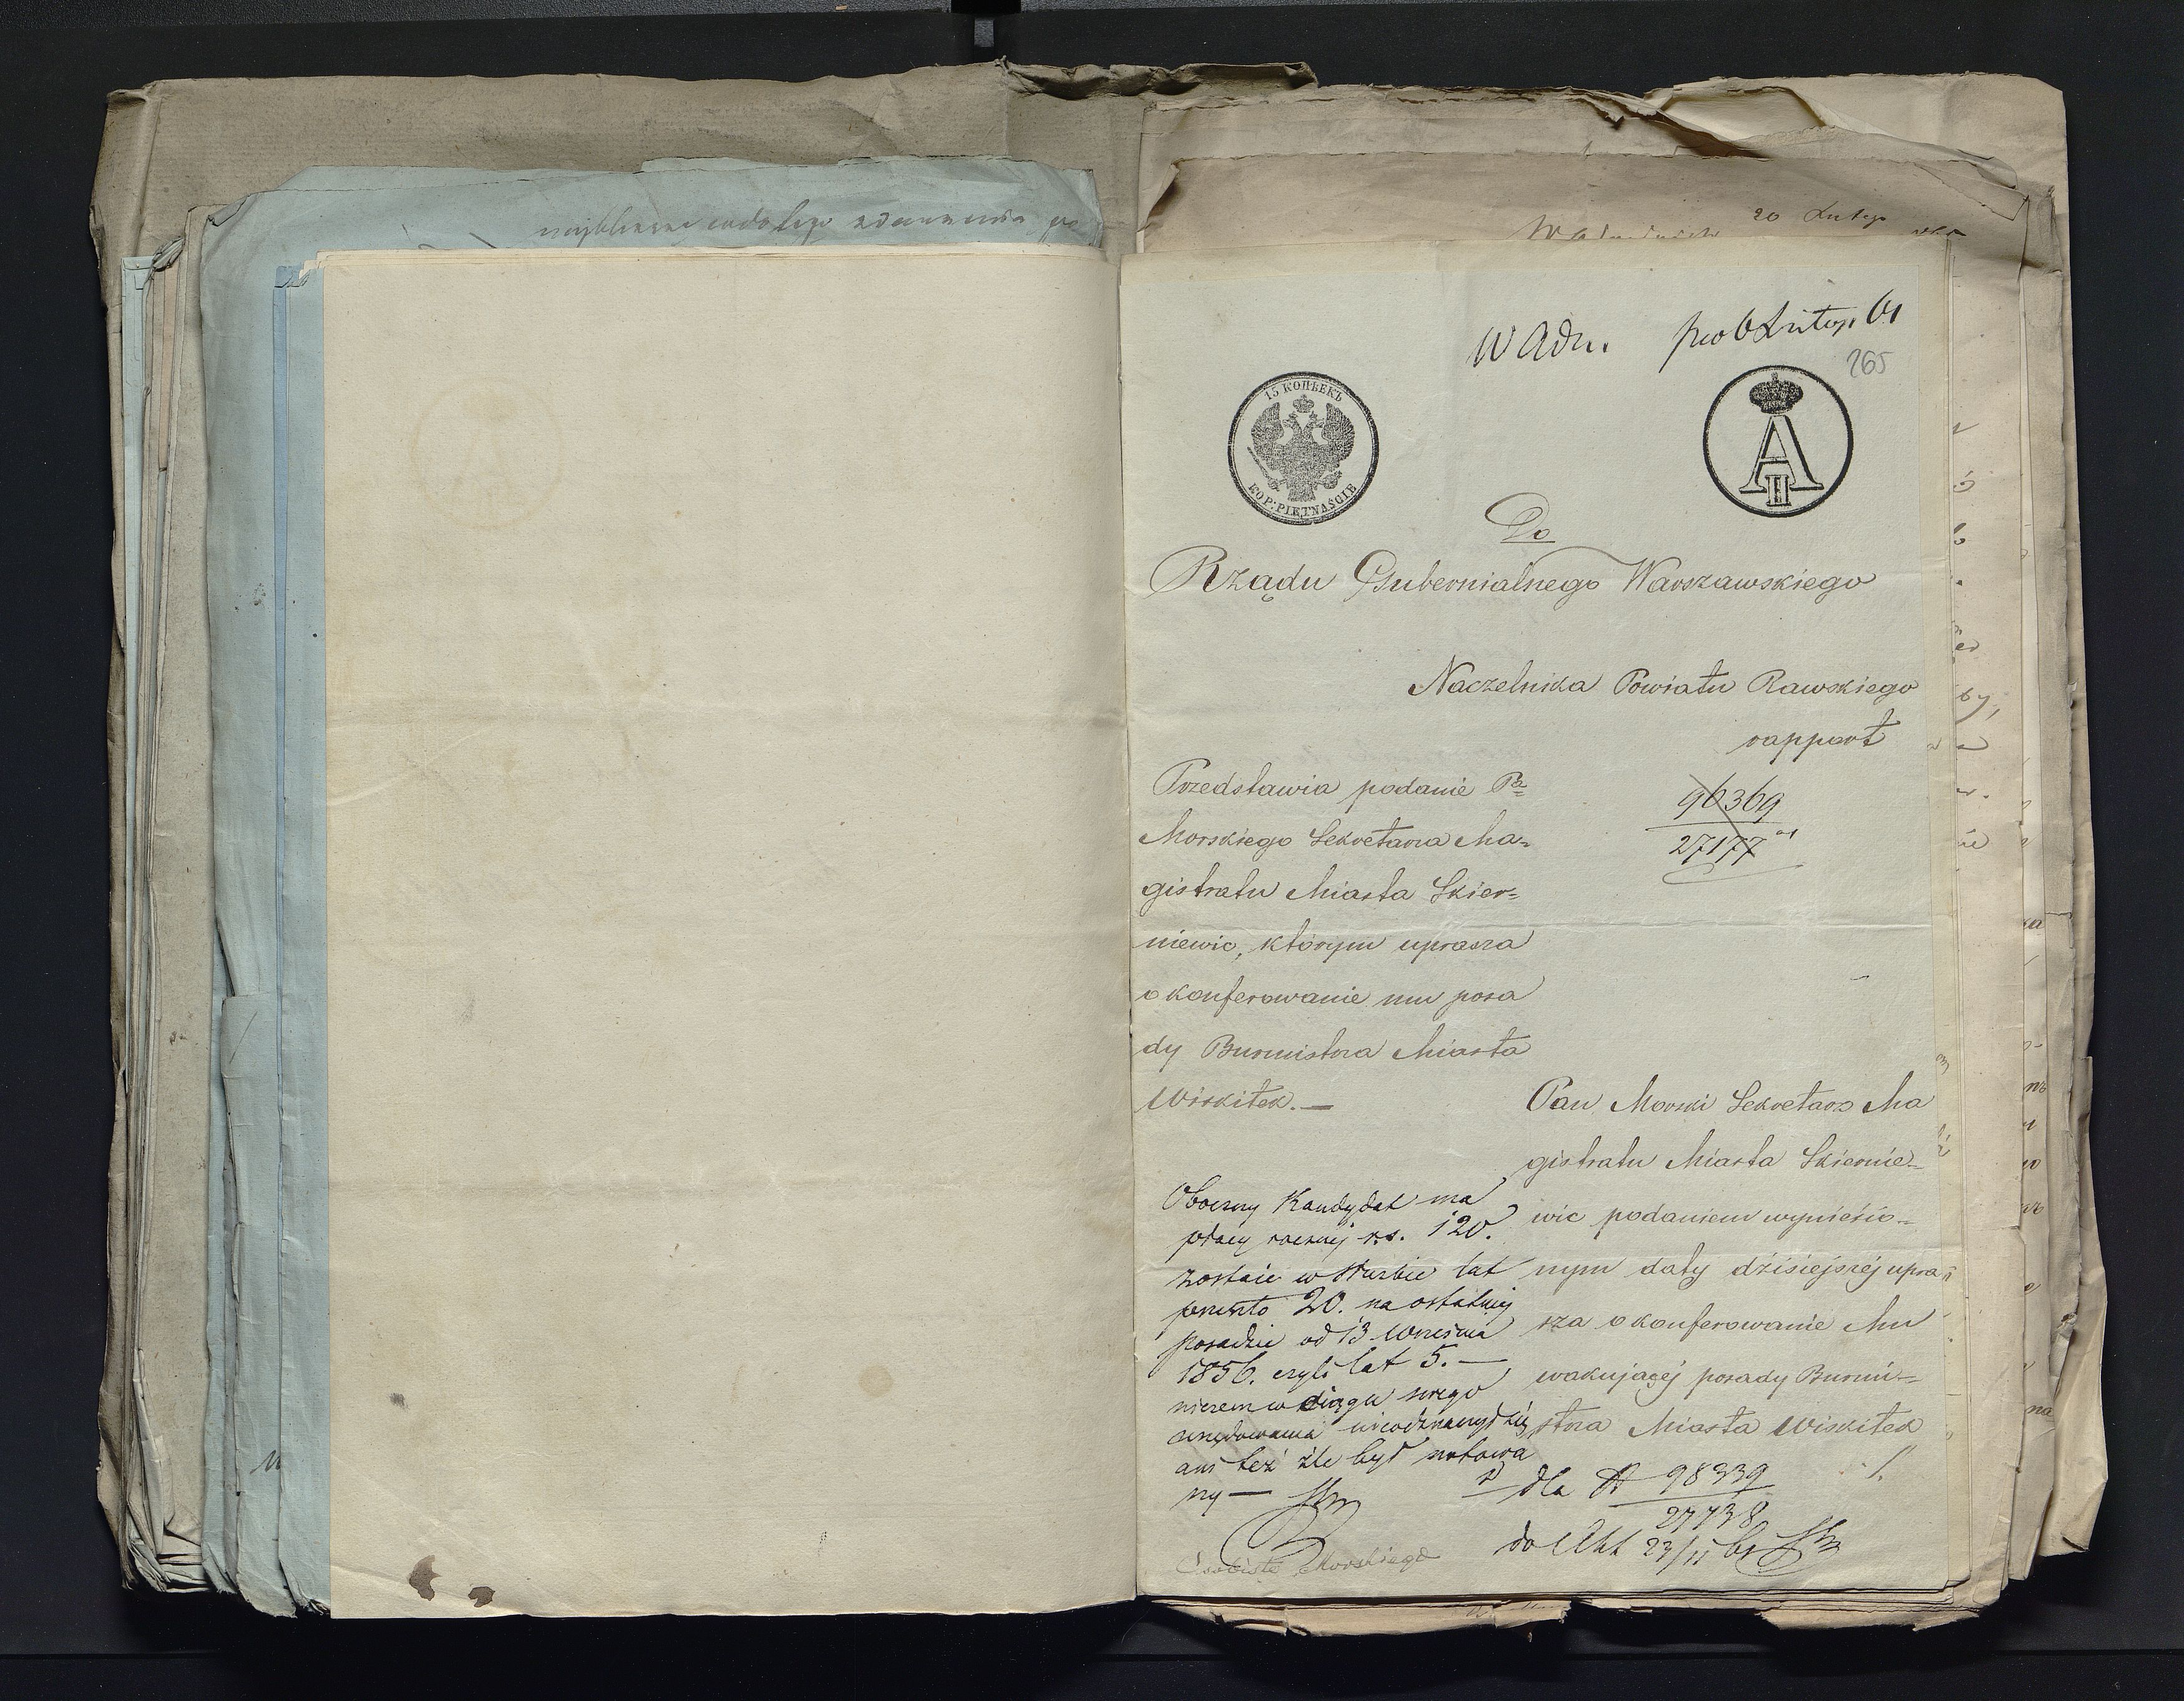 20 Lutego
W Adn. pr 6 Lutego 61
265
15 КОПѢЕКЪ
KOP: PIĘTNAŚCIE
A II
Do
Rządu Gubernialnego Warszawskiego
Naczelnika Powiatu Rawskiego
rapport
Przedstawia podanie Pa
Morskiego Sekretarza Ma=
gistratu Miasta Skier=
niewic, którym uprasza
o konferowanie mu posa
dy Burmistrza Miasta
Wiskitek. —
96369
27177
Pan Morski Sekretarz Ma
gistratu Miasta Skiernie=
wic podaniem wyniesio=
nym daty dzisiejszéj upra
sza o konferowanie Mu
wakującéj posady Burmi=
strza Miasta Wiskitek
Oboczny Kandydat ma
płacy rocznéj rs. 120.
zostaie w służbie lat
przeszło 20. na ostatniéj
posadzie od 13 Września
1856. czyli lat 5. —
niczem w ciągu swego
urzędowania nieodznaczył się
ani też źle był notowa
ny —
dla 98339
27738
do Akt 23/11 61
Osobiste Morskiego